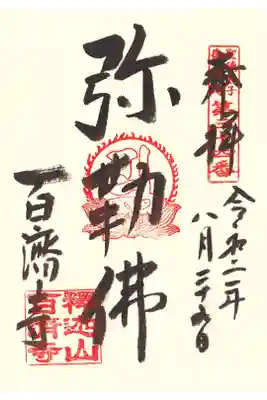 奉拝
令和二年
八月二十 日
弥勒佛
百濟寺
釋迦山
百済寺